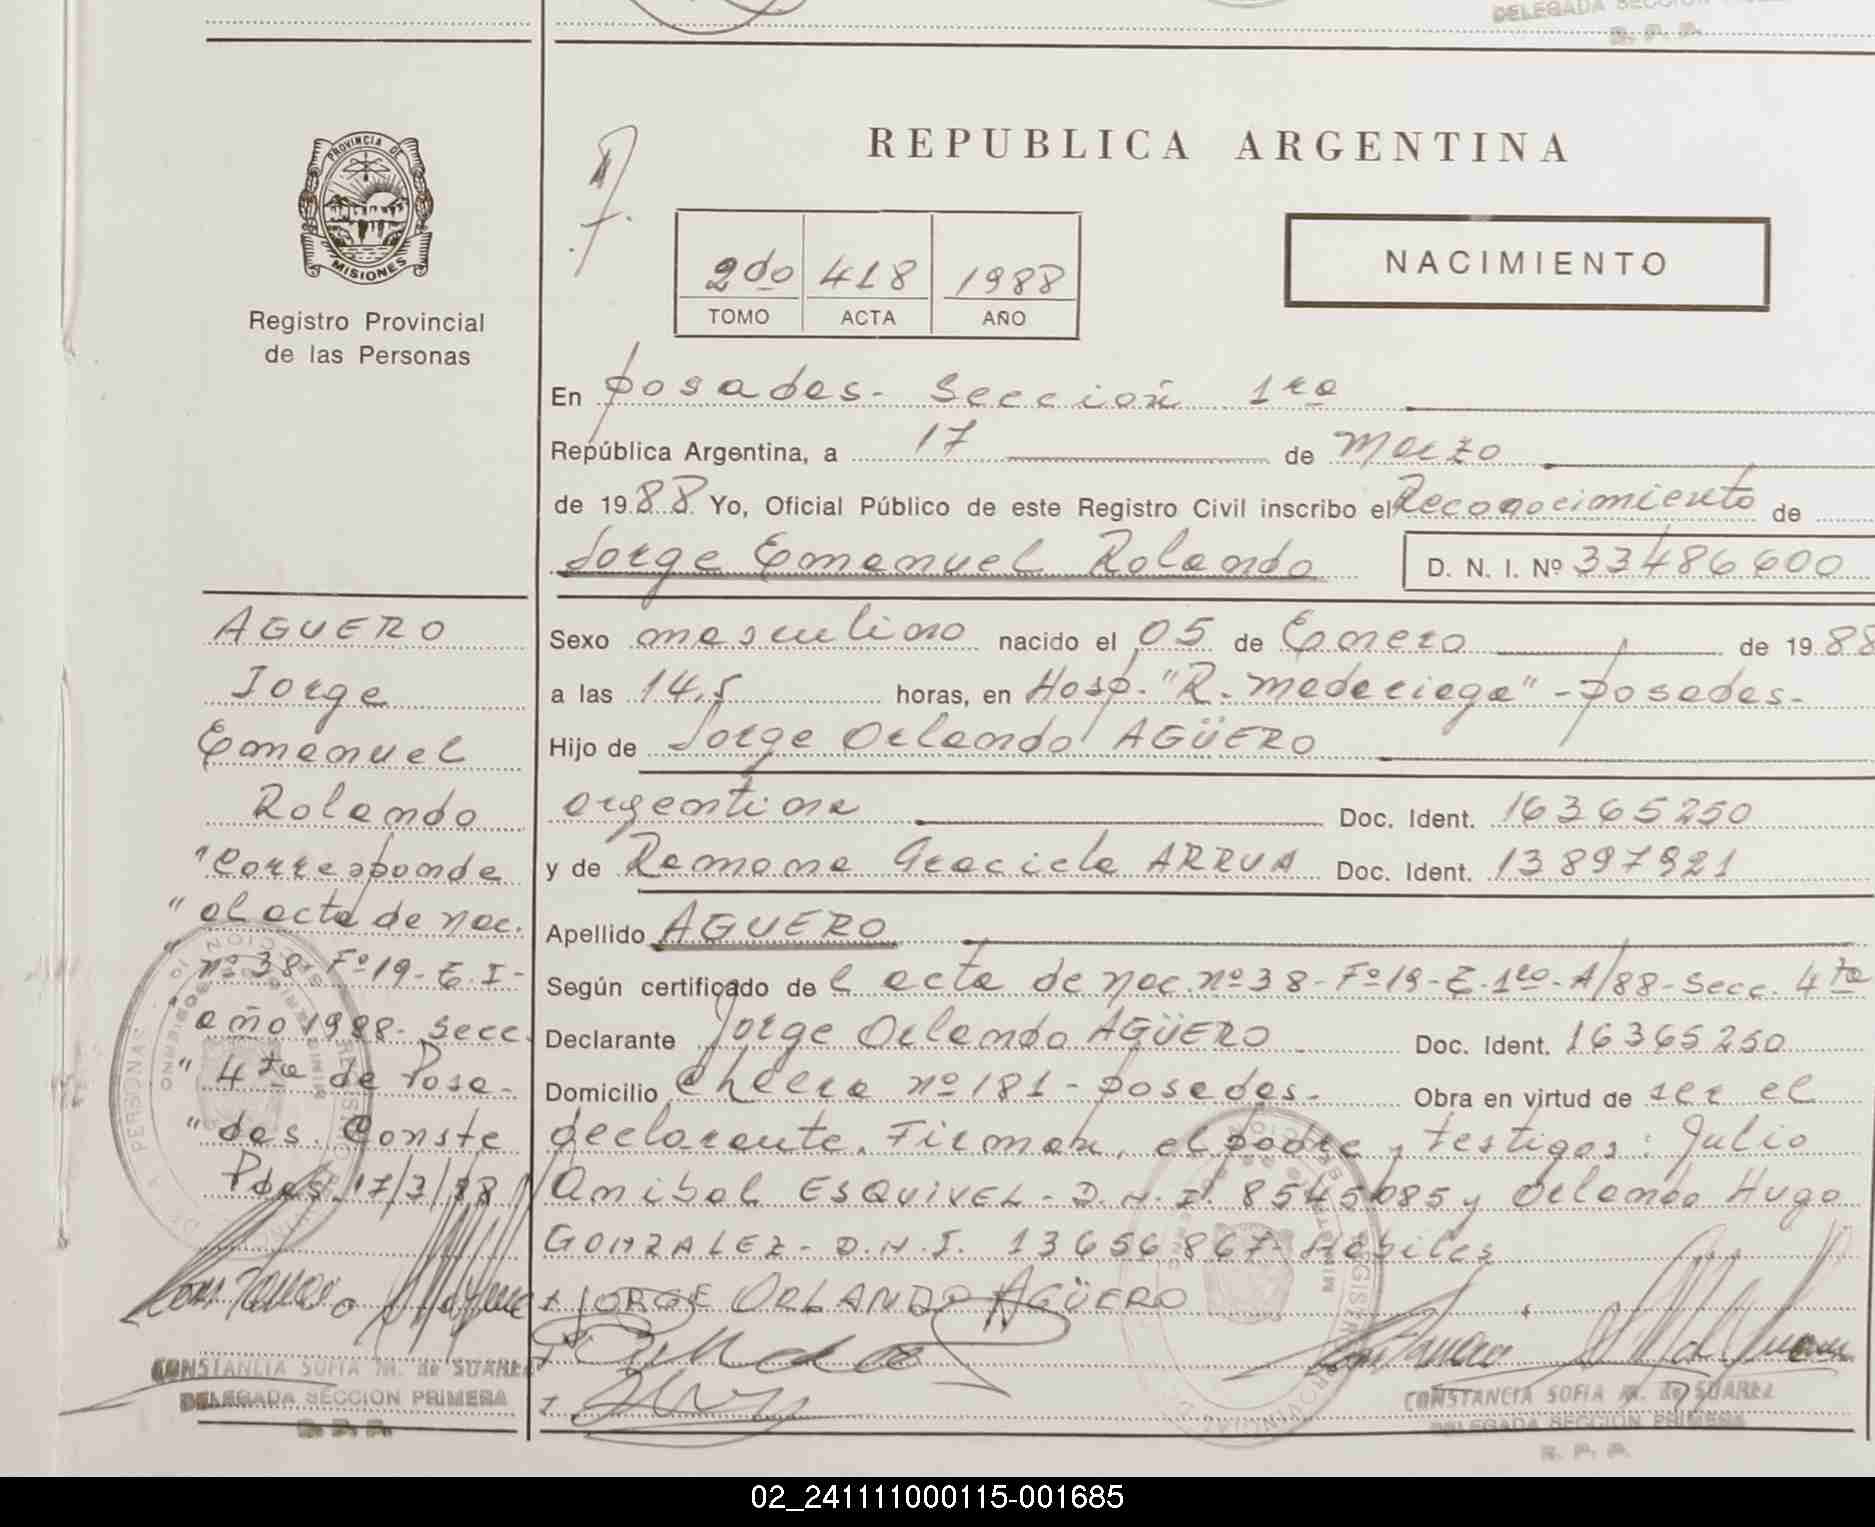 DELEGADA SECCION
R. P. A.
PROVINCIA DE
MISIONES
Registro Provincial
de las Personas
REPUBLICA ARGENTINA
2do 418 1988
TOMO ACTA AÑO
NACIMIENTO
En Posadas - Sección 1ra
República Argentina, a 17 de Marzo
de 1988 Yo, Oficial Público de este Registro Civil inscribo el Reconocimiento de
Jorge Emanuel Rolando D. N. I. Nº 33486600
Sexo masculino nacido el 05 de Enero de 1988
a las 14,5 horas, en Hosp. "R. Madariaga" - Posadas -
Hijo de Jorge Orlando AGÜERO
argentina Doc. Ident. 16365250
y de Ramona Graciela ARRUA Doc. Ident. 13897921
Apellido AGUERO
Según certificado de l acta de nac. nº 38 - Fº 19 - E. 1ro - A/88 - Secc. 4ta
Declarante Jorge Orlando AGÜERO Doc. Ident. 16365250
Domicilio nº 181 - Posadas - Obra en virtud de ser el
declarante. Firman, el padre y testigos: Julio
Anibal ESQUIVEL - D.N.I. 8545085 y Orlando Hugo
GONZALEZ - D.N.I. 13656867 - Hábiles
+ JORGE ORLANDO AGÜERO
CONSTANCIA SOFIA M. de SUAREZ
DELEGADA SECCION PRIMERA
R. P. A.
AGUERO
Jorge
Emanuel
Rolando
"Corresponde
" al acta de nac.
" nº 38 - Fº 19 - E. I -
año 1988 - Secc.
" 4ta de Posa-
" das. Conste
Pdas. 17/3/88
CONSTANCIA SOFIA M. de SUAREZ
DELEGADA SECCION PRIMERA
R. P. A.
02_241111000115-001685